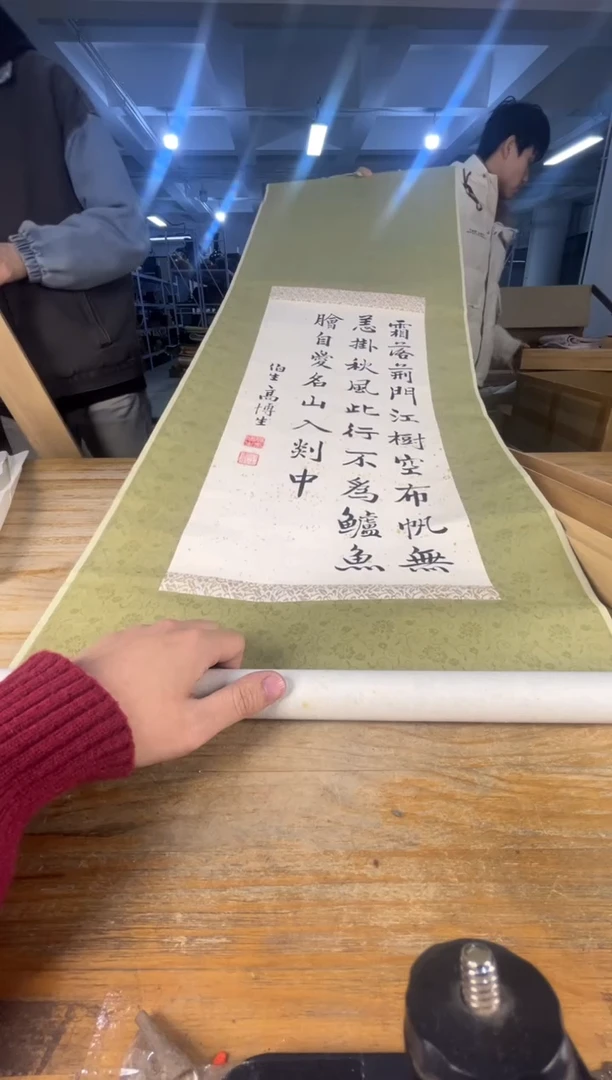 霜落荆門江樹空布帆無
恙掛秋風此行不為鱸魚
膾自愛名山入剡中
伯生高博生